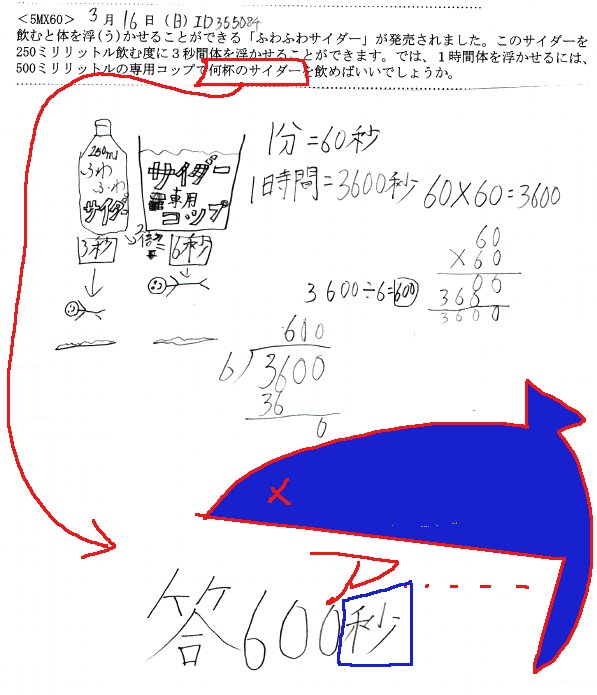 <5MX60> 3月16日(日)ID355084
飲むと体を浮(う)かせることができる「ふわふわサイダー」が発売されました。このサイダーを
250ミリリットル飲む度に3秒間体を浮かせることができます。では、1時間体を浮かせるには、
500ミリリットルの専用コップで何杯のサイダーを飲めばいいでしょうか。
250ml
ふわ
ふわ
サイダー
サイダー
専用
コップ
3秒
2倍
6秒
1分=60秒
1時間=3600秒 60×60=3600
60
×60
00
360
3600
3600÷6=600
600
6)3600
36
0
答600秒